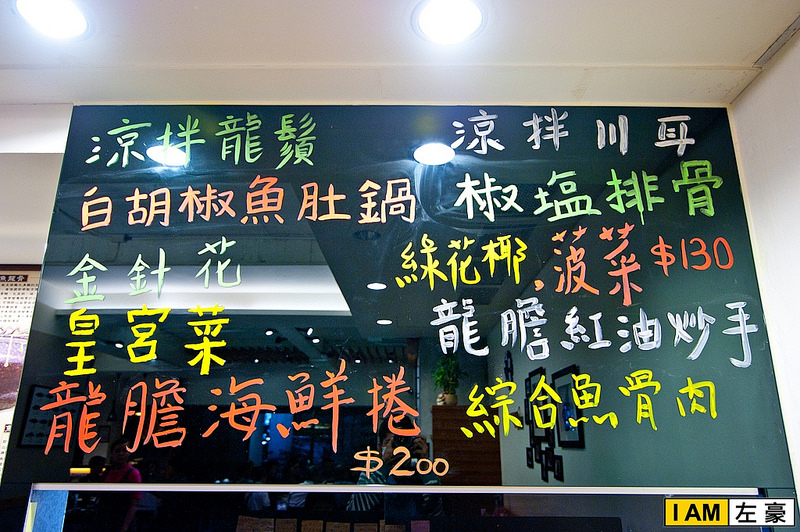 涼拌龍鬚
涼拌川耳
白胡椒魚肚鍋
椒塩排骨
金針花
綠花椰.菠菜$130
皇宮菜
龍膽紅油炒手
龍膽海鮮捲
$200
綜合魚骨肉
I AM 左豪